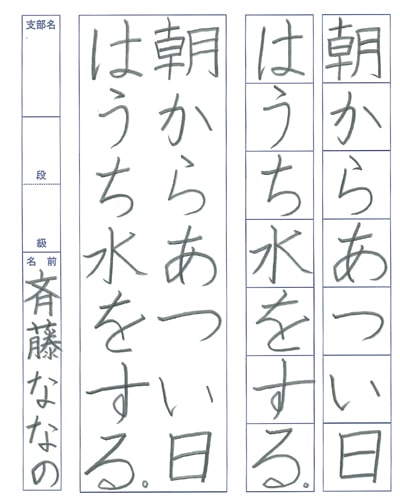 朝からあつい日
はうち水をする。
朝からあつい日
はうち水をする。
支部名
段
級
名前
斉藤ななの